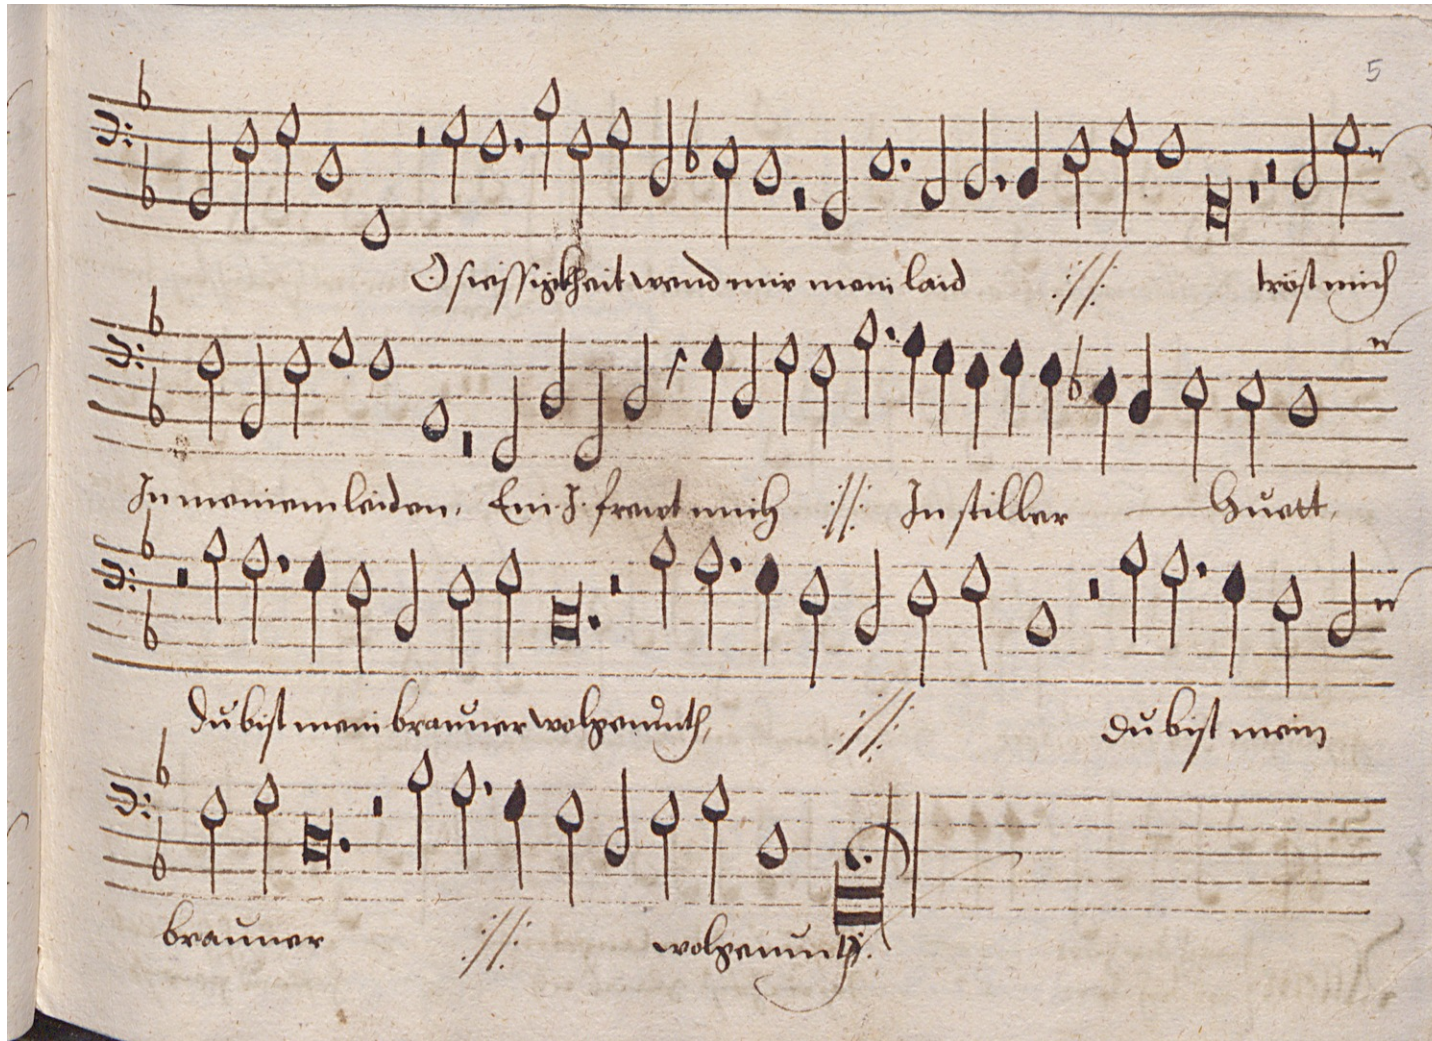 5
O siessigkheit wend mir mein laid :// : tröst mich
In meinem leiden, Ein J. frewt mich :// : In stiller Huett,
du bist mein brauner wolgemuth, :// : du bist mein
brauner :// : wolgemuth.